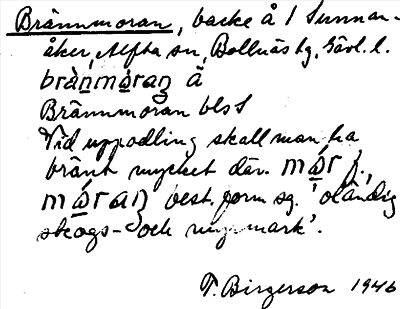 Brännmoran, backe å 1 Sunnan-
åker, Alfta sn, Bollnäs tg, Gävl. l.
brànmòraṇ å
Brännmoran bls 1
Vid uppodling skall man ha
bränt mycket där. mór f.,
móran best. form sg. 'oländig
skogs- och myrmark'.
T. Birgerson 1946